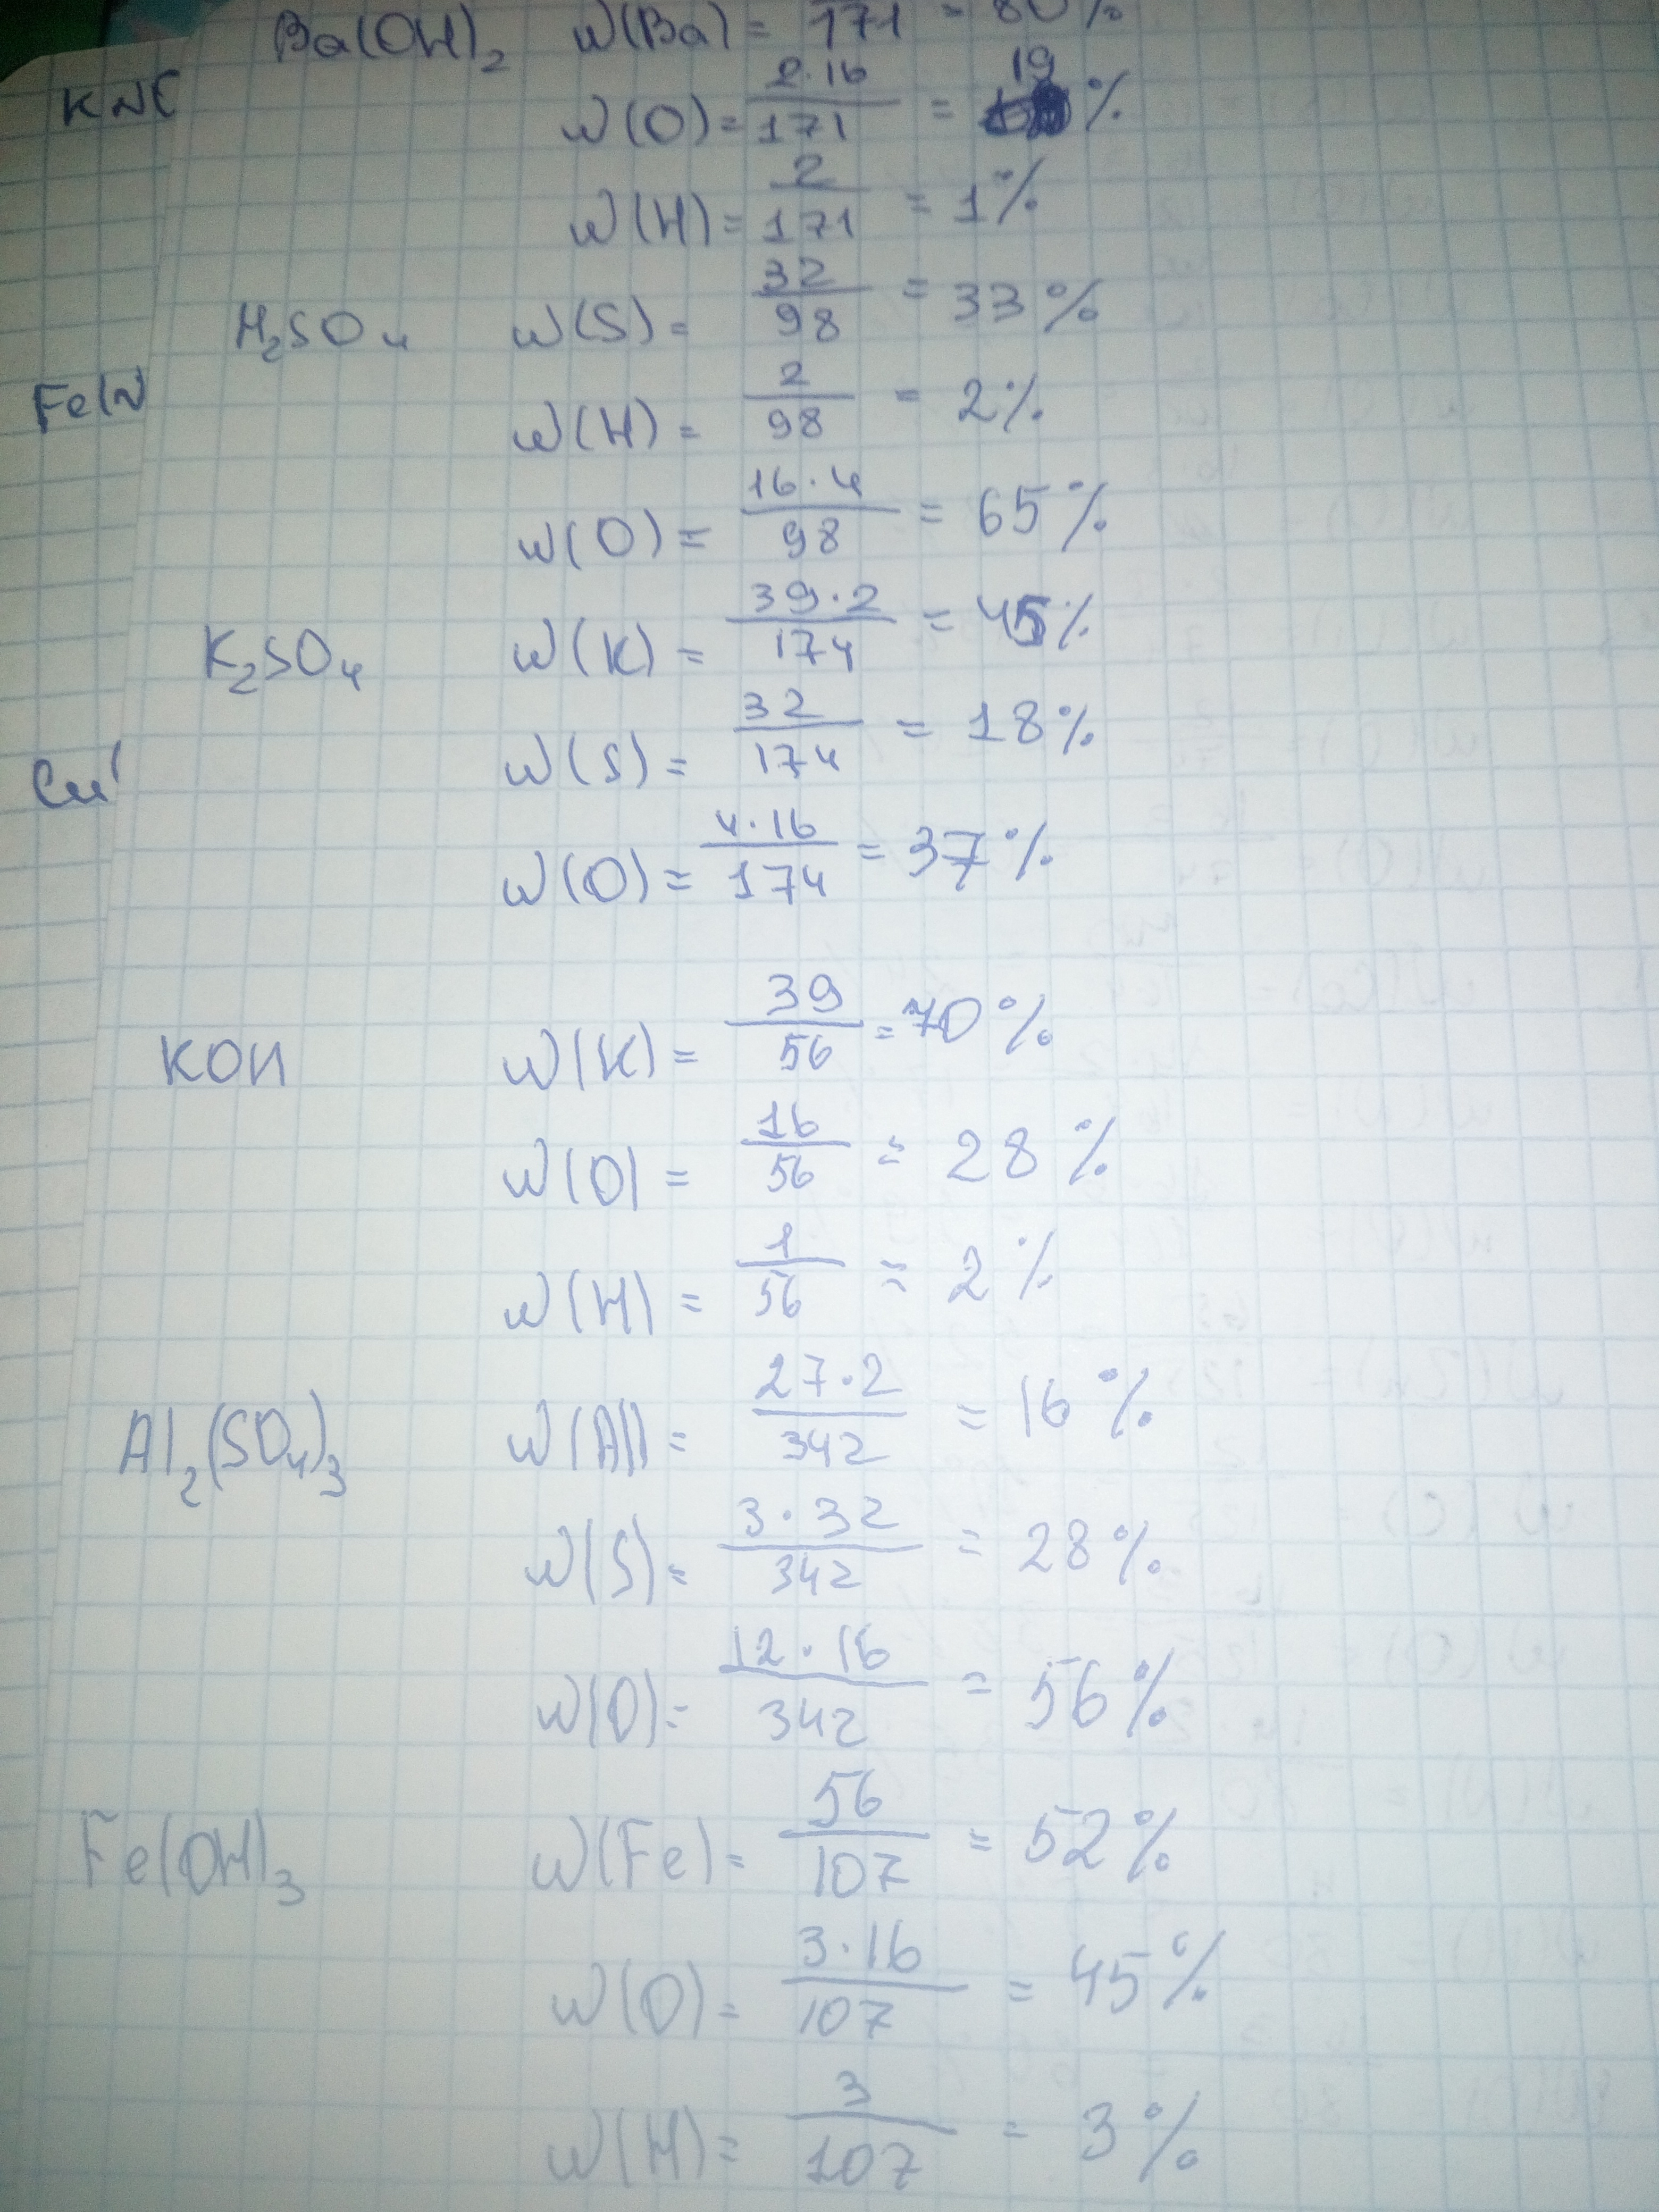 Ba(OH)₂ w(Ba) = 171 = 80%
KN
w(O) = 2·16/171 = 19%
w(H) = 2/171 = 1%
H₂SO₄ w(S) = 32/98 = 33%
Fe(N
w(H) = 2/98 = 2%
w(O) = 16·4/98 = 65%
K₂SO₄ w(K) = 39·2/174 = 45%
w(S) = 32/174 = 18%
Cu
w(O) = 4·16/174 = 37%
KOH w(K) = 39/56 = 70%
w(O) = 16/56 = 28%
w(H) = 1/56 = 2%
Al₂(SO₄)₃ w(Al) = 27·2/342 = 16%
w(S) = 3·32/342 = 28%
w(O) = 12·16/342 = 56%
Fe(OH)₃ w(Fe) = 56/107 = 52%
w(O) = 3·16/107 = 45%
w(H) = 3/107 = 3%